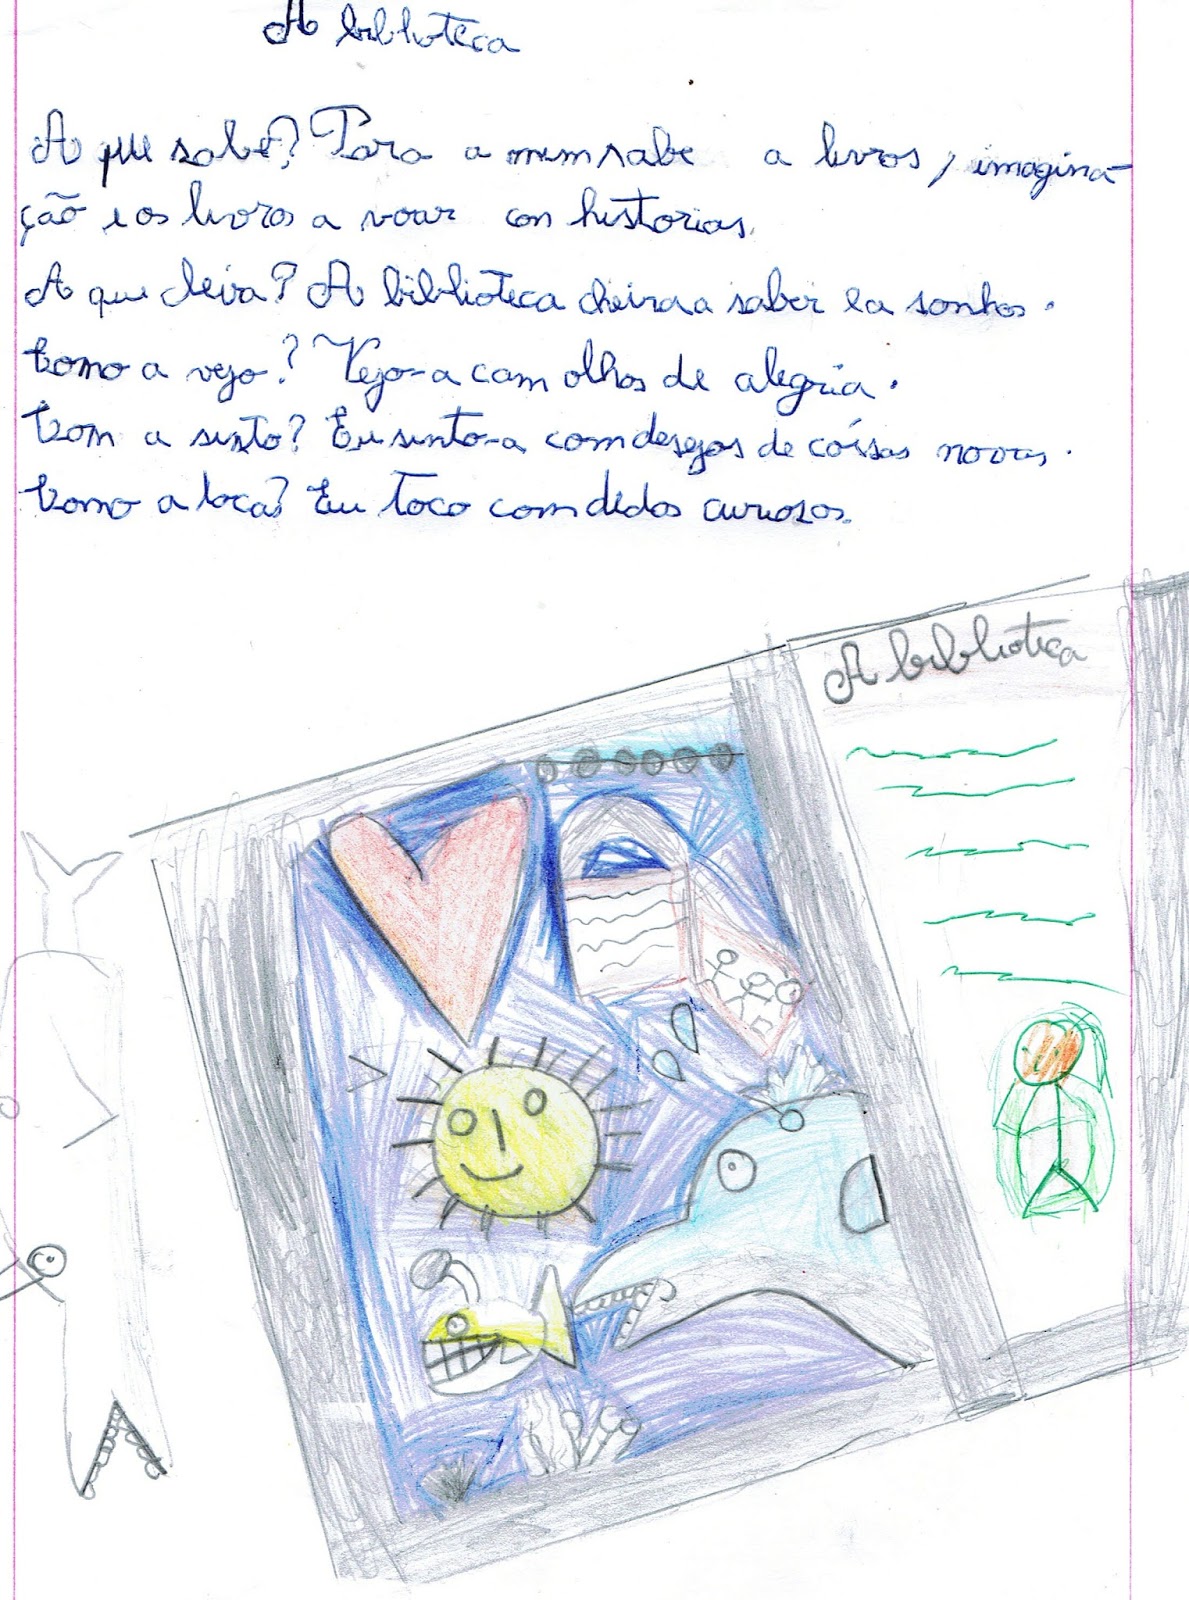 A biblioteca
A que sabe? Para a mim sabe a livros, imagina-
ção e os livros a voar con historias.
A que cheira? A biblioteca cheira a saber e a sonhos.
Como a vejo? Vejo-a com olhos de alegria.
Com a sinto? Eu sinto-a com desejos de coisas novas.
Como a toca? Eu toco com dedos curiosos.
A biblioteca